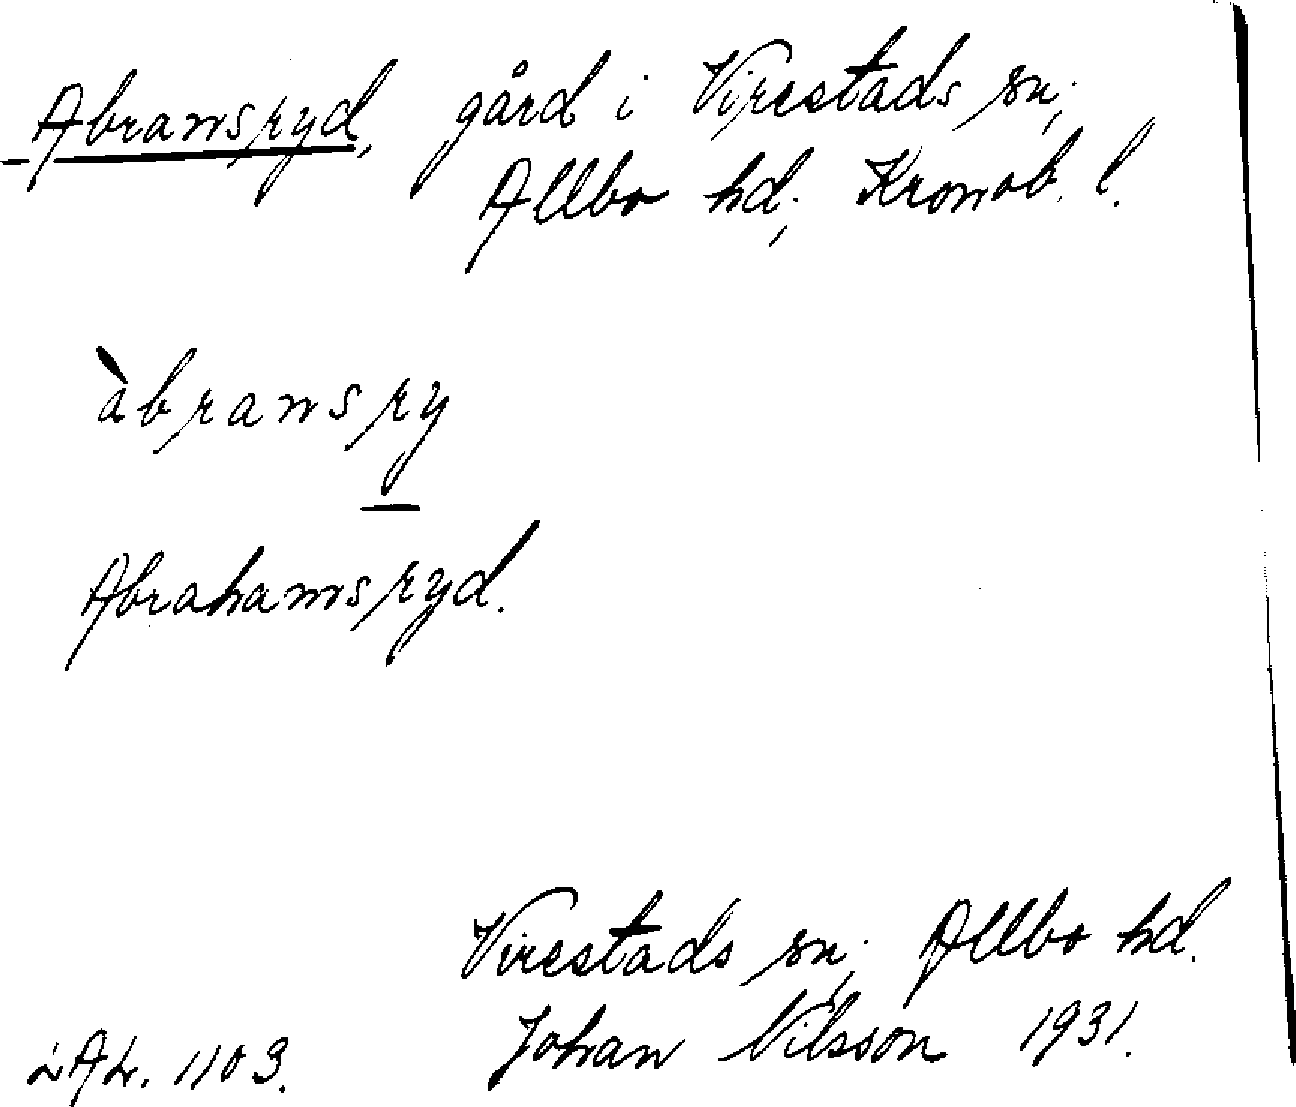 Abramsryd, gård i Virestads sn.,
Allbo hd., Kronob. l.
àbramsry
Abrahamsryd.
Virestads sn., Allbo hd.
Johan Nilsson 1931.
1103.